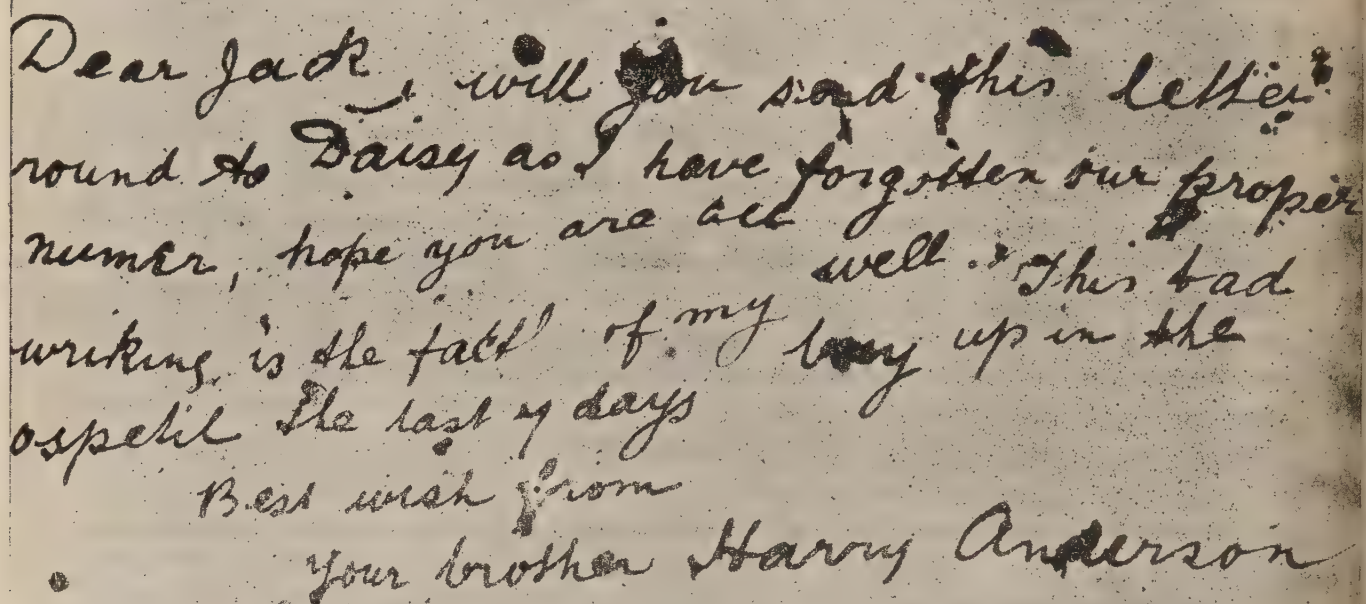 Dear Jack, will you send this letter
round to Daisey as I have forgotten our proper
numer, hope you are all well. This bad
wriking is the fact of my up in the
ospetil the last 4 days
Best wish from
Your brother Harry Anderson